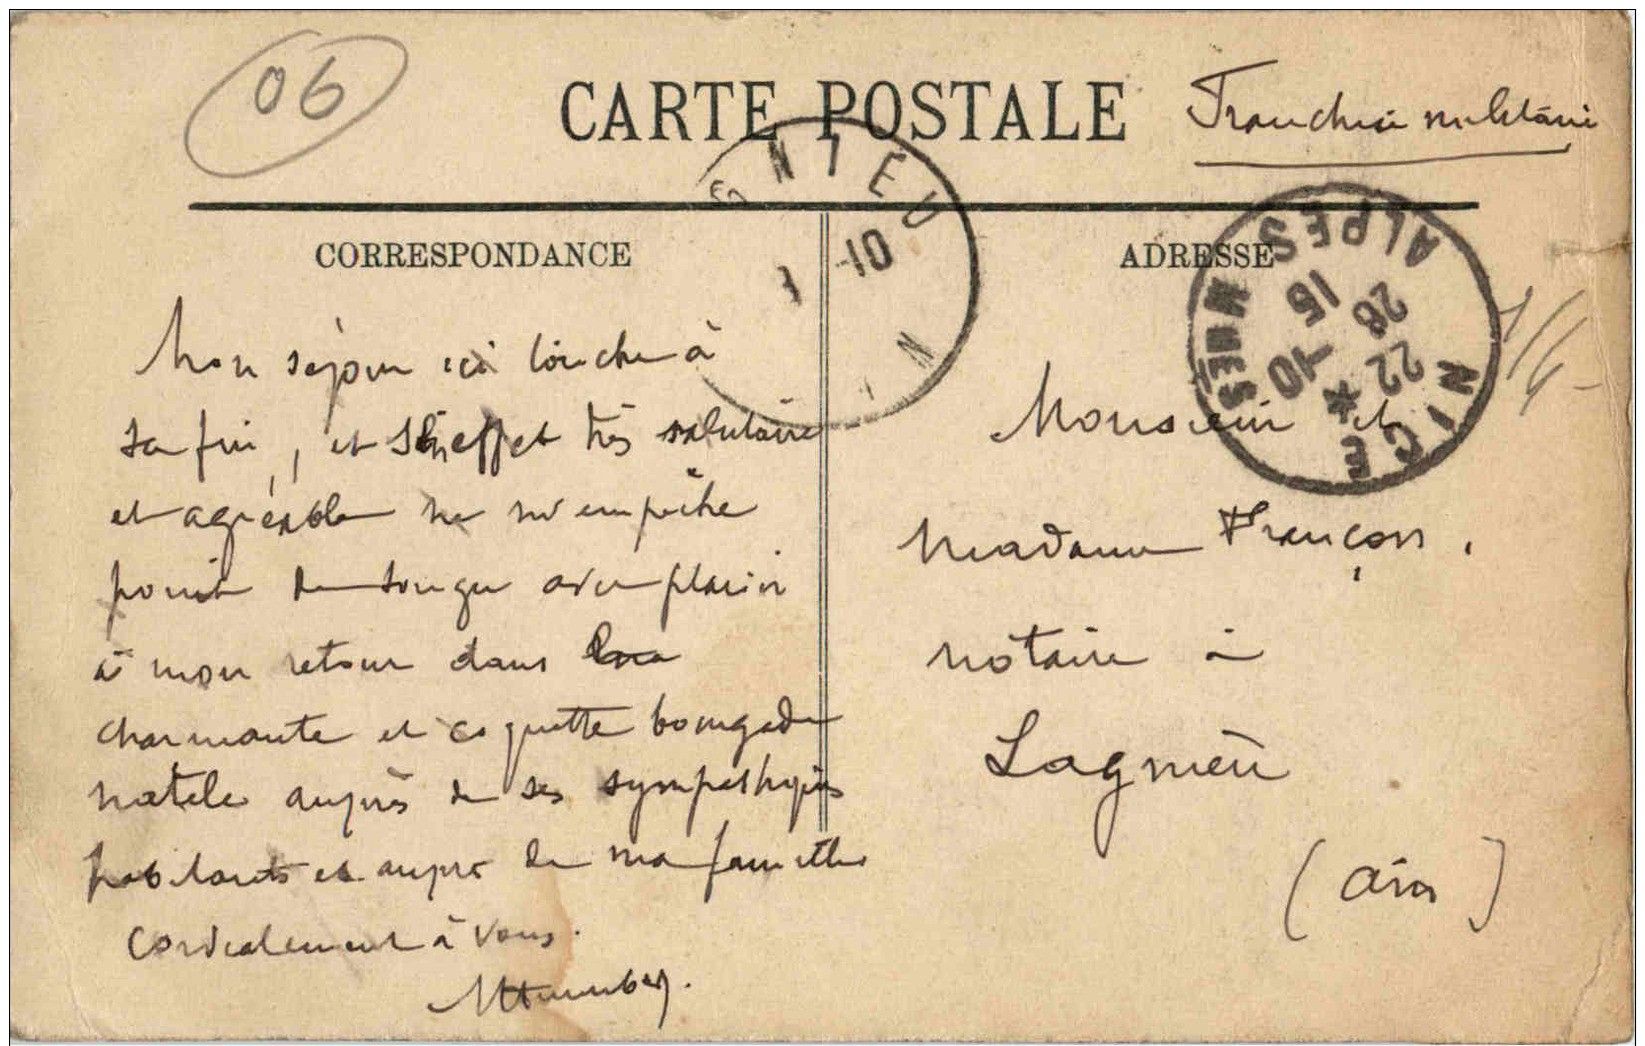 06
CARTE POSTALE
Franchise militaire
GNIEU
10
N
CORRESPONDANCE
ADRESSE
NICE
ALPES MMES
22 28
15 -10
Mon séjour ici touche à
sa fin, et effet très salutaire
et agréable ne m'empêche
point de songer avec plaisir
à mon retour dans
charmante et coquette bourgade
natale auprès de ses sympathiques
habitants et auprès de ma famille
Cordialement à vous.
Monsieur et
Madame Françon,
notaire à
Lagnieu
(Ain)